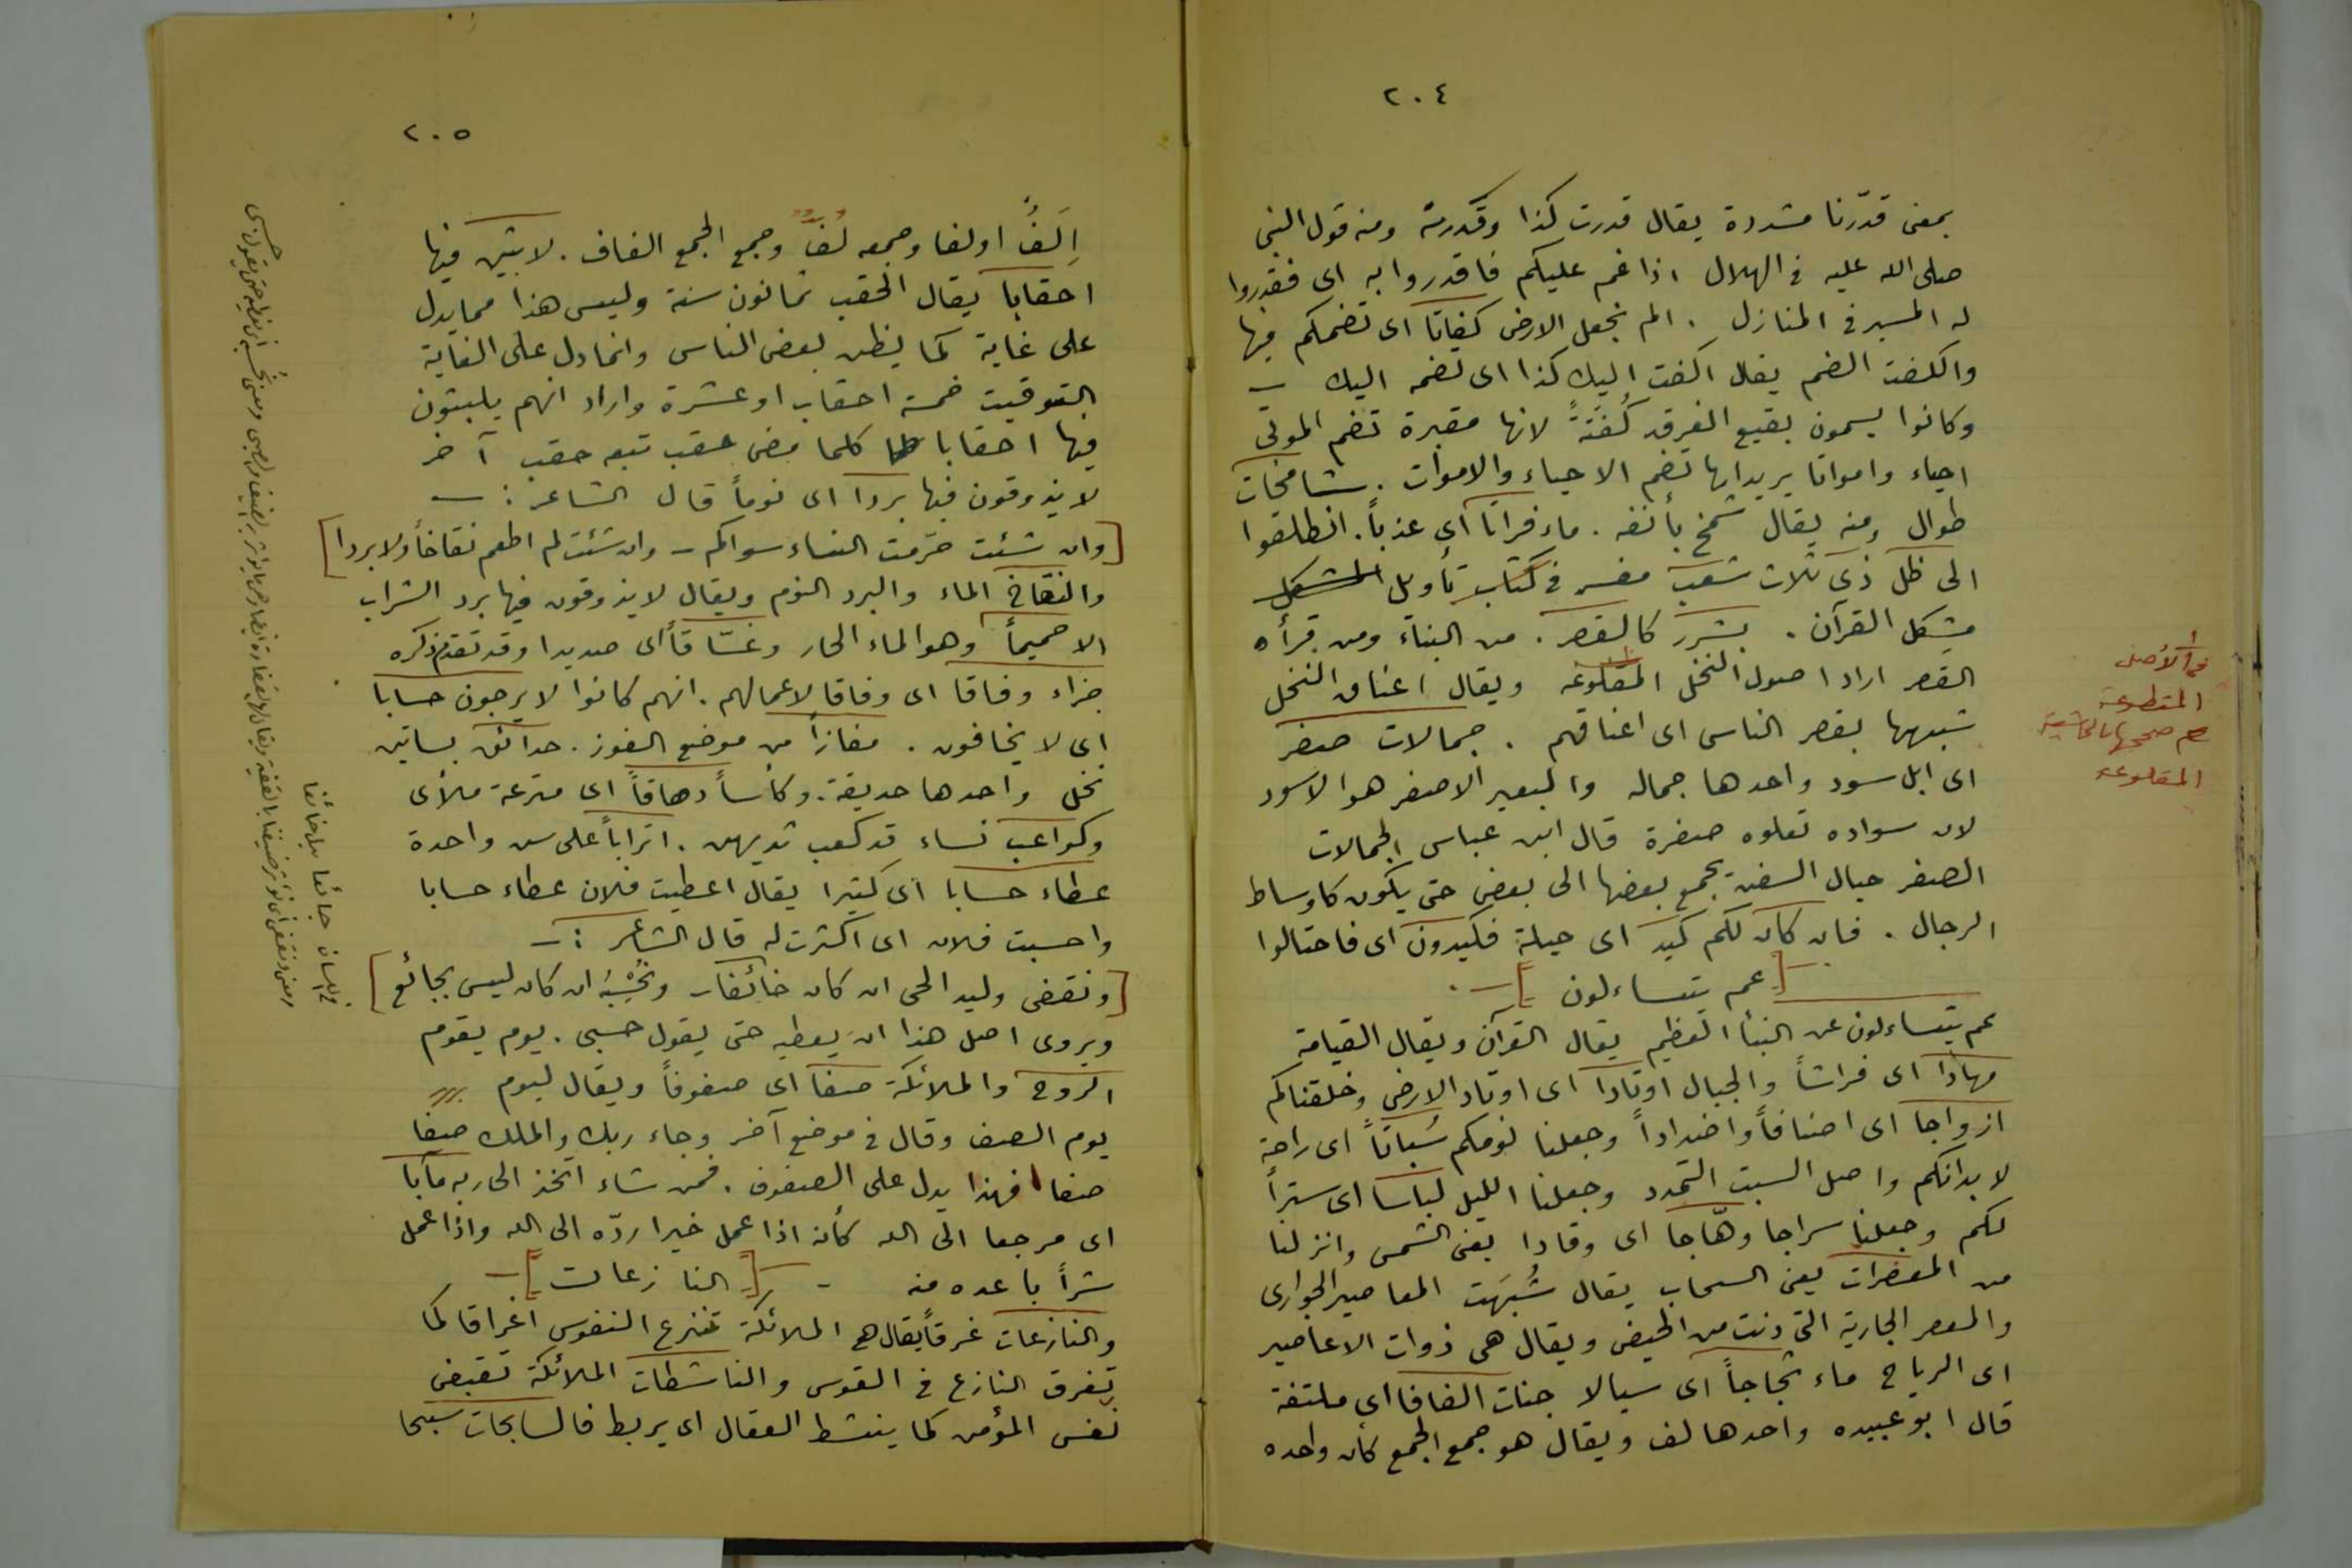 ٢٠٤
بمعنى قدّرنا مشددة يقال قدرت كذا وقدرته ومنه قول النبي
صلى الله عليه في الهلال اذا غم عليكم فاقدروا به اى فقدروا
له المسير في المنازل . الم نجعل الارض كفاتا اى تضمكم فيها
والكفت الضم يقال اكفت اليك كذا اى تضمه اليك -
وكانوا يسمون بقيع الغرقد كُفتَةً لانها مقبرة تضم الموتى
احياء واموتا يريد انها تضم الاحياء والاموات . شامخات
طوال ومنه يقال شمخ بأنفه . ماء فراتا اى عذباً . انطلقوا
الى ظل ذى ثلاث شعب مفسر في كتاب تأويل المشكل
مشكل القرآن . بشرر كالقصر . من البناء ومن قرأه
القصر اراد اصول النخل المقلوعه ويقال اعناق النخل
شبهها بقصر الناس اى اعناقهم . جمالات صفر
اى ابل سود واحدها جماله والبعير الاصفر هو الاسود
لان سواده تعلوه صفرة قال ابن عباس الجمالات
الصفر حبال السفن يجمع بعضها الى بعض حتى يكون كاوساط
الرجال . فان كان لكم كيد اى حيلة فكيدون اى فاحتالوا
[عم يتساءلون]
عم يتساءلون عن النبأ العظيم يقال القرآن ويقال القيامة
مهادا اى فراشاً والجبال اوتادا اى اوتاد الارض وخلقناكم
ازواجا اى اصنافاً واضداداً وجعلنا نومكم سُباتاً اى راحة
لابدانكم واصل السبت التمدد وجعلنا الليل لباسا اى ستراً
لكم وجعلنا سراجا وهّاجا اى وقادا يعنى الشمس وانزلنا
من المعصرات يعنى السحاب يقال شُبهَت المعاصير الجوارى
والمعصر الجارية التى دنت من الحيض ويقال هى ذوات الاعاصير
اى الرياح ماء ثجاجاً اى سيالا جنات الفافا اى ملتفة
قال ابو عبيده واحدها لف ويقال هو جمع الجمع كأن واحده
في الأصل
المقطوعة
صححها بالحاشية
المقلوعة
٢٠٥
اِلَفُّ او لفا وجمعه لُف وجمع الجمع الفاف . لابثين فيها
احقابا يقال الحقب ثمانون سنة وليس هذا مما يدل
على غاية كما يظن بعض الناس وانما دل على الغاية
التوقيت خمسة احقاب او عشرة واراد انهم يلبثون
فيها احقابا كلما مضى حقب تبعه حقب آخر
لا يذوقون فيها بردا اى نوماً قال الشاعر : -
[وان شئت حرّمت النساء سواكم - وان شئت لم اطعم نقاخاً ولا بردا]
والنقاخ الماء والبرد النوم ويقال لا يذوقون فيها برد الشراب
الا حميماً وهو الماء الحار وغسّاقاً اى صديدا وقد تقدم ذكره
جزاء وفاقا اى وفاقا لاعمالهم . انهم كانوا لا يرجون حسابا
اى لا يخافون . مفازاً من موضع الفوز . حدائق بساتين
نخل واحدها حديقة . وكأساً دهاقاً اى مترعة ملأى
وكواعب نساء قد كعب ثديهن . اتراباً على سن واحدة
عطاء حسابا اى كثيرا يقال اعطيت فلان عطاء حسابا
واحسبت فلان اى اكثرت له قال الشاعر : -
[ونقفى وليد الحى ان كان خائفا - ونُحْسِبُه ان كان ليس بجائع]
ويروى اصل هذا ان يعطيه حتى يقول حسبى . يوم يقوم
الروح والملائكة صفا اى صفوفاً ويقال ليوم
يوم الصف وقال في موضع آخر وجاء ربك والملك صفا
صفا فهذا يدل على الصفوف . فمن شاء اتخذ الى ربه مآبا
اى مرجعا الى الله كأنه اذا عمل خيرا ردّه الى الله واذا عمل
شراً باعده منه - [النازعات]
والنازعات غرقاً يقال هم الملائكة تنزع النفوس اغراقا كما
يغرق النازع في القوس والناشطات الملائكة تقبض
نفس المؤمن كما ينشط العقال اى يربط فالسابحات سبحا
في اللسان جائعا بدل خائفا